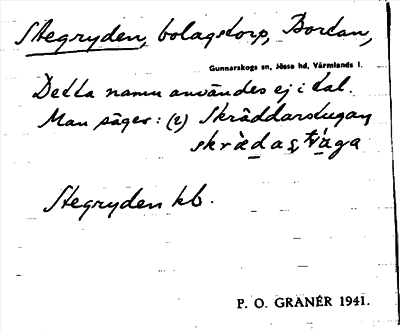 Stegryden, bolagstorp, Bortan,
Gunnarskogs sn, Jösse hd, Värmlands l.
Detta namn användes ej i tal.
Man säger: (2) Skräddarstugan
Stegryden kb.
P. O. GRANÉR 1941.